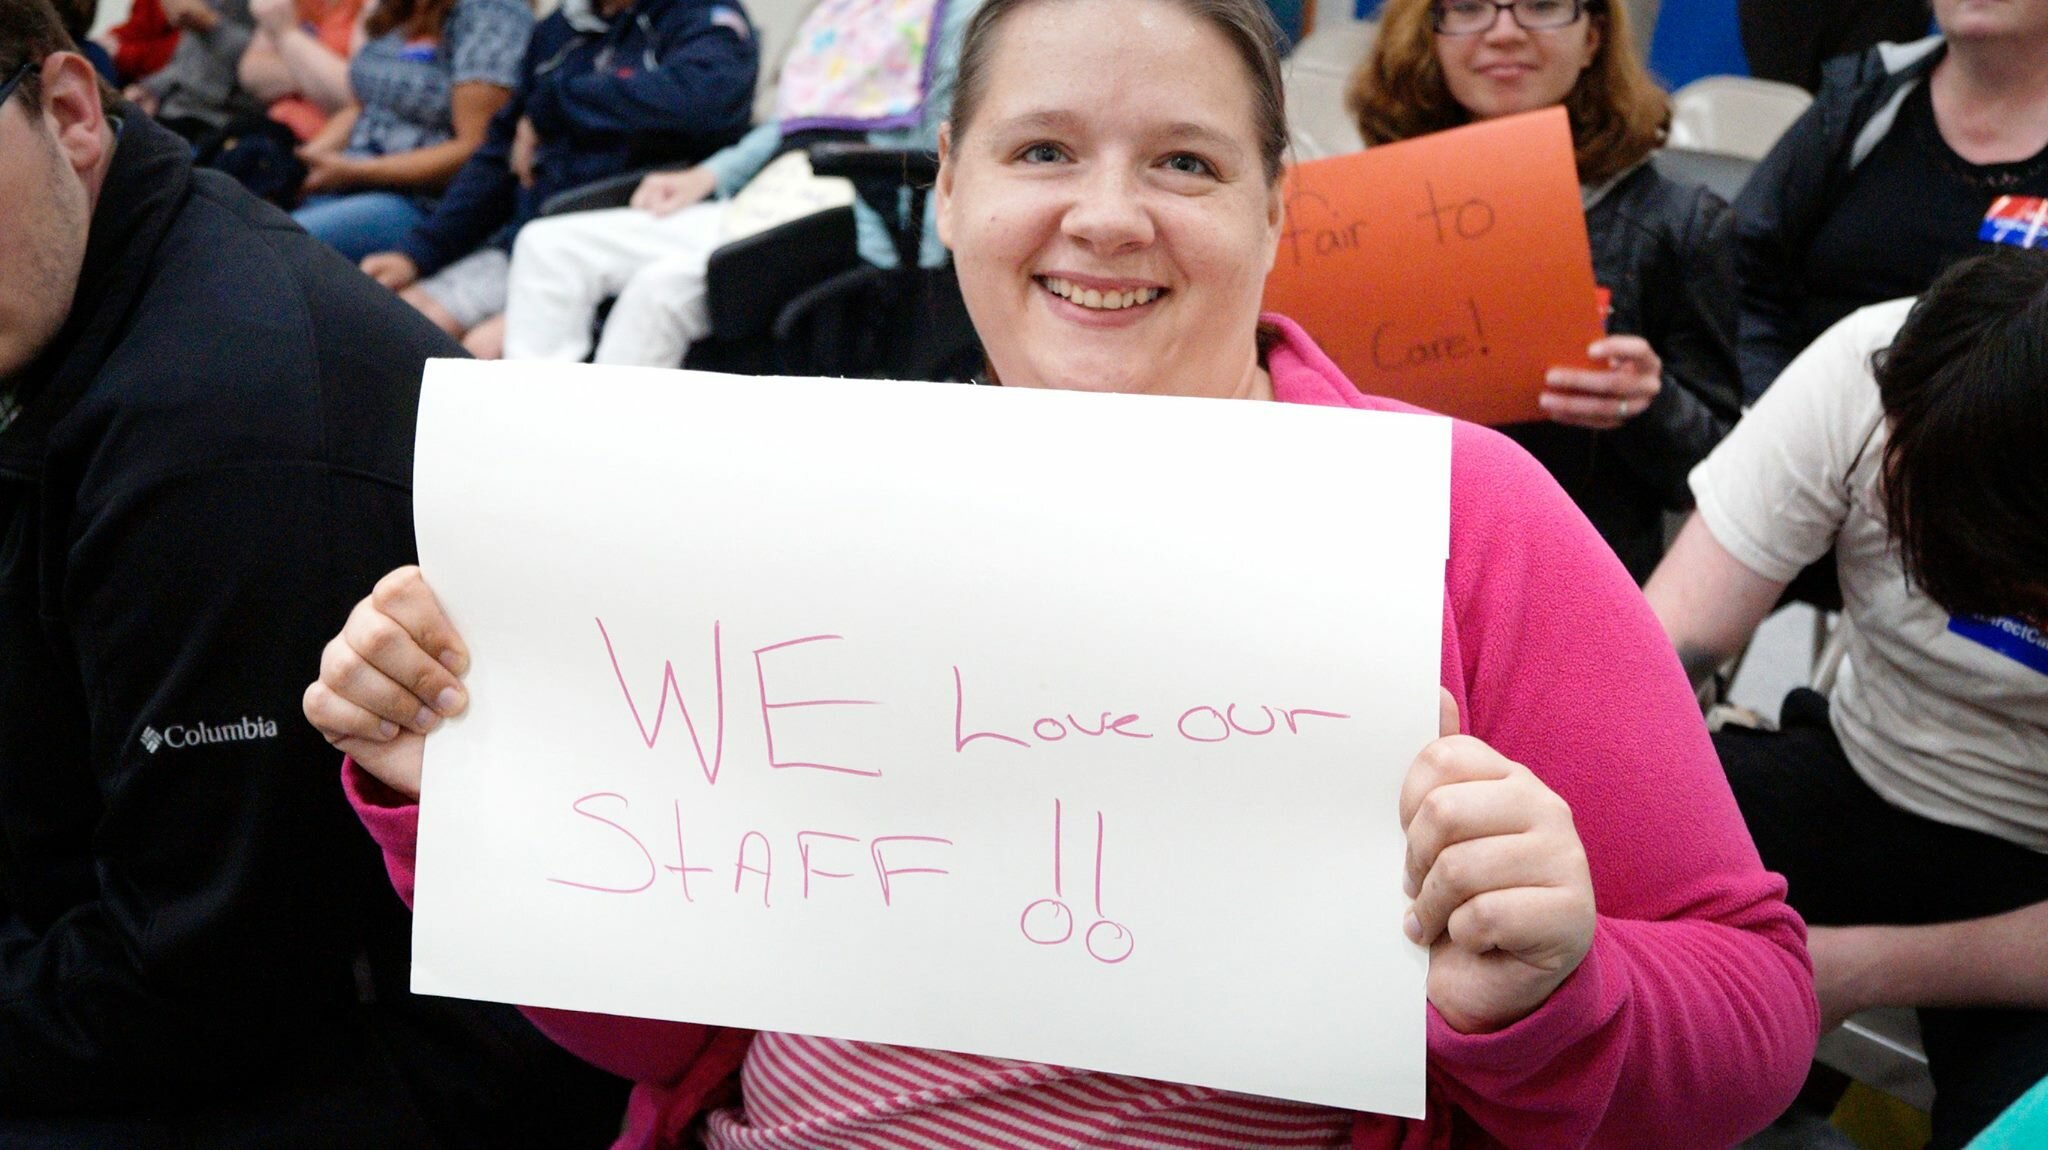 WE Love our
StAFF !!
fair to
Care!
Columbia